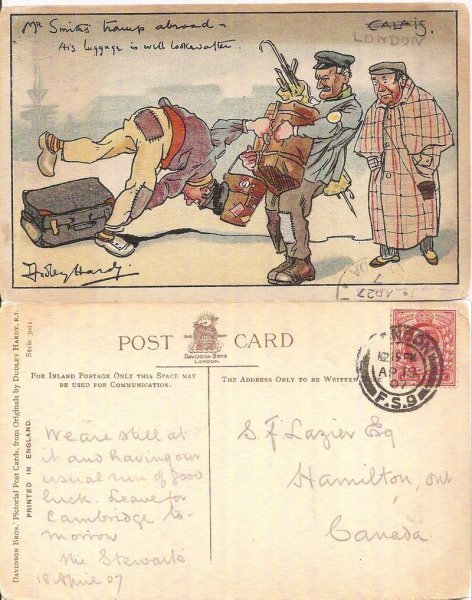 Mr Smith's tramp abroad -
His luggage is well looked after.
CALAIS.
LONDON
Dudley Hardy
AP 27
POST CARD
DAVIDSON BROS.
LONDON.
FOR INLAND POSTAGE ONLY THIS SPACE MAY
BE USED FOR COMMUNICATION.
THE ADDRESS ONLY TO BE WRITTEN
LONDON
12.15 PM
AP 19
07
F.S.9
DAVIDSON BROS.' PICTORIAL POST CARDS, from Originals by DUDLEY HARDY, R.I.
Serie 3021
PRINTED IN ENGLAND.
We are still at
it and having our
usual run of good
luck. Leave for
Cambridge to-
morrow
The Stewarts
18 April 07
S. F. Lazier Esq
Hamilton, Ont
Canada